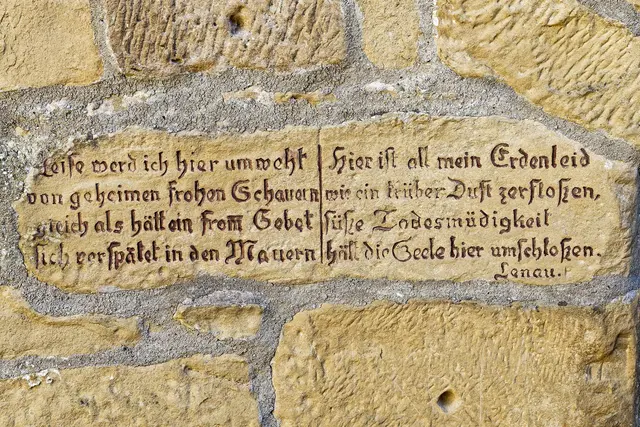 Leise werd ich hier umweht
von geheimen frohen Schauern
gleich als hätt ein from̅ Gebet
sich verspätet in den Mauern
Hier ist all mein Erdenleid
wie ein trüber Duft zerfloßen,
süße Todesmüdigkeit
hält die Seele hier umschloßen.
Lenau.